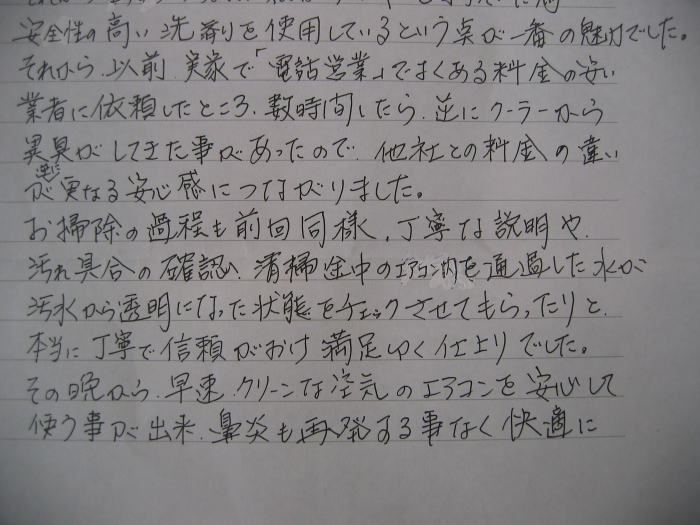 安全性の高い洗剤を使用しているという点が一番の魅力でした。
それから、以前、実家で「電話営業」でよくある料金の安い
業者に依頼したところ、数時間したら、逆にクーラーから
異臭がしてきた事があったので、他社との料金の違い
が逆に更なる安心感につながりました。
お掃除の過程も前回同様、丁寧な説明や、
汚れ具合の確認、清掃途中のエアコン内を通過した水が
汚水から透明になった状態をチェックさせてもらったりと、
本当に丁寧で信頼がおけ満足いく仕上りでした。
その晩から、早速、クリーンな空気のエアコンを安心して
使う事が出来、鼻炎も再発する事なく快適に